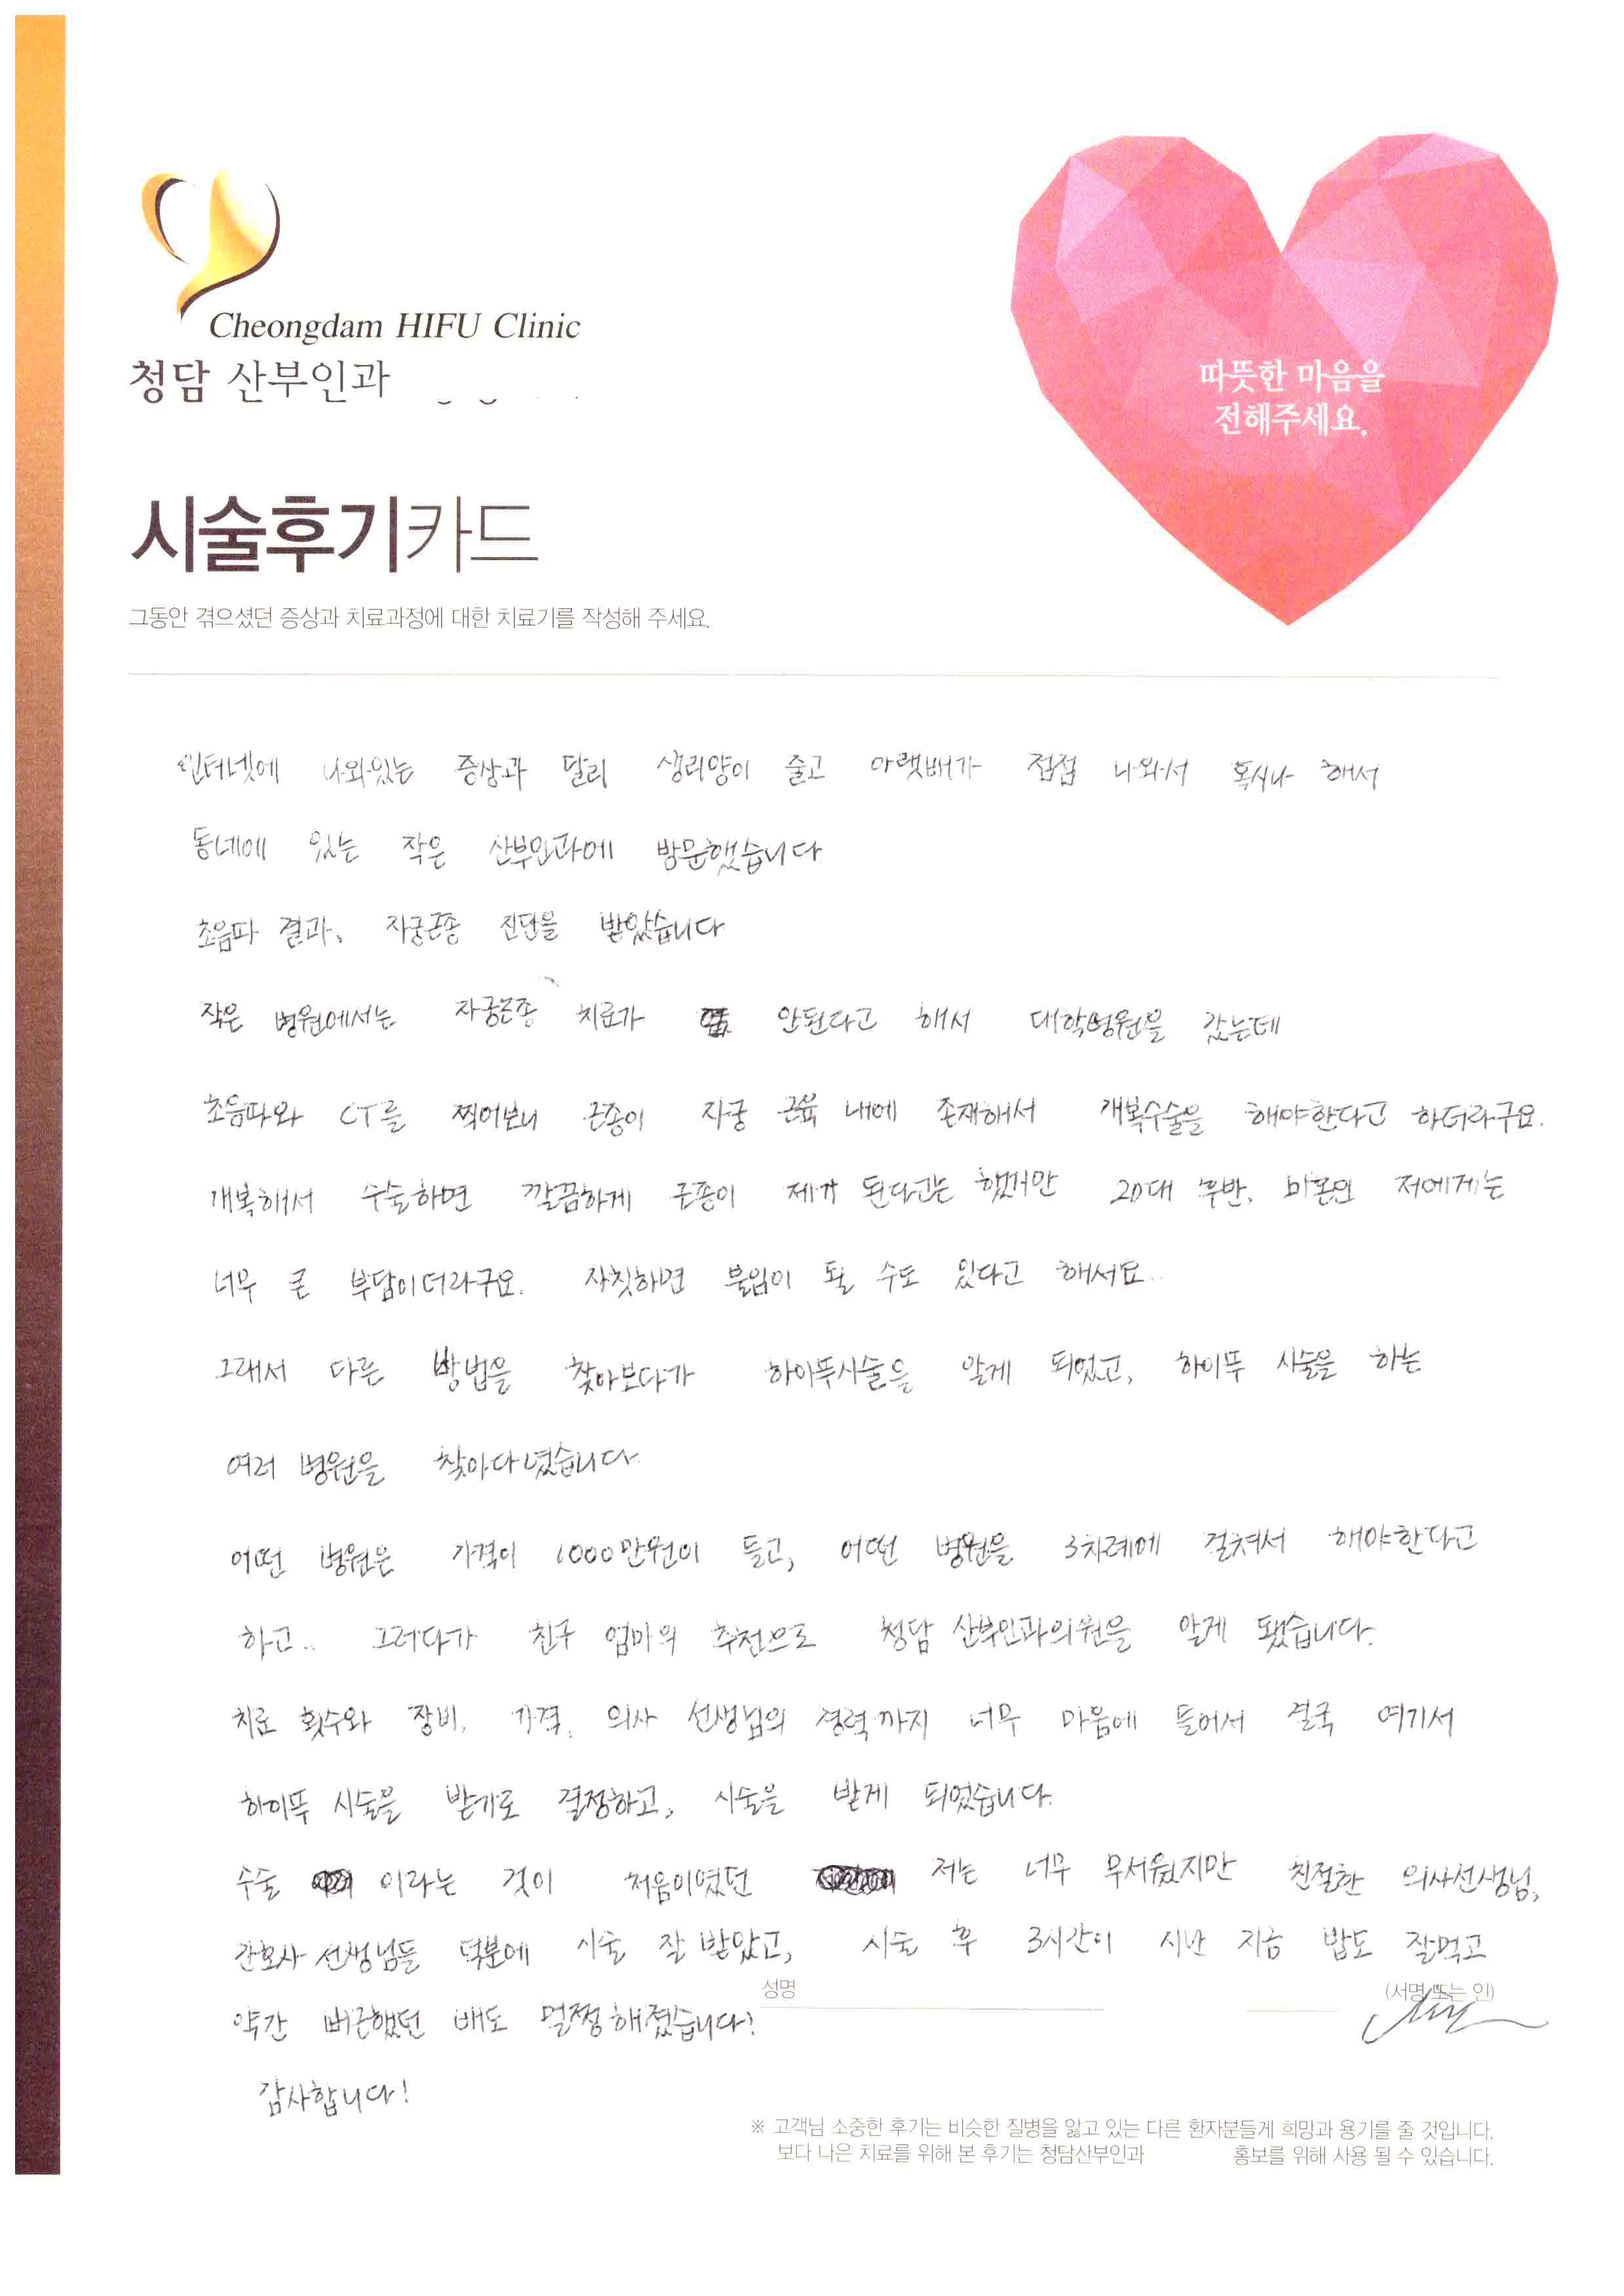 Cheongdam HIFU Clinic
청담 산부인과
따뜻한 마음을
전해주세요.
시술후기카드
그동안 겪으셨던 증상과 치료과정에 대한 치료기를 작성해 주세요.
인터넷에 나와있는 증상과 달리 생리양이 줄고 아랫배가 점점 나와서 혹시나 해서
동네에 있는 작은 산부인과에 방문했습니다
초음파 결과, 자궁근종 진단을 받았습니다
작은 병원에서는 자궁근종 치료가 안된다고 해서 대학병원을 갔는데
초음파와 CT를 찍어보니 근종이 자궁 근육 내에 존재해서 개복수술을 해야한다고 하더라구요.
개복해서 수술하면 깔끔하게 근종이 제거 된다고는 했지만 20대 후반, 미혼인 저에게는
너무 큰 부담이더라구요. 자칫하면 불임이 될 수도 있다고 해서요..
그래서 다른 방법을 찾아보다가 하이푸시술을 알게 되었고, 하이푸 시술을 하는
여러 병원을 찾아다녔습니다
어떤 병원은 가격이 1000만원이 들고, 어떤 병원은 3차례에 걸쳐서 해야한다고
하고.. 그러다가 친구 엄마의 추천으로 청담 산부인과의원을 알게 됐습니다.
치료 횟수와 장비, 가격, 의사 선생님의 경력까지 너무 마음에 들어서 결국 여기서
하이푸 시술을 받기로 결정하고, 시술을 받게 되었습니다.
수술 이라는 것이 처음이였던 저는 너무 무서웠지만 친절한 의사선생님,
간호사 선생님들 덕분에 시술 잘 받았고, 시술 후 3시간이 지난 지금 밥도 잘먹고
성명 (서명 또는 인)
약간 뻐근했던 배도 멀쩡해졌습니다!
감사합니다!
※ 고객님 소중한 후기는 비슷한 질병을 앓고 있는 다른 환자분들게 희망과 용기를 줄 것입니다.
보다 나은 치료를 위해 본 후기는 청담산부인과 홍보를 위해 사용 될 수 있습니다.